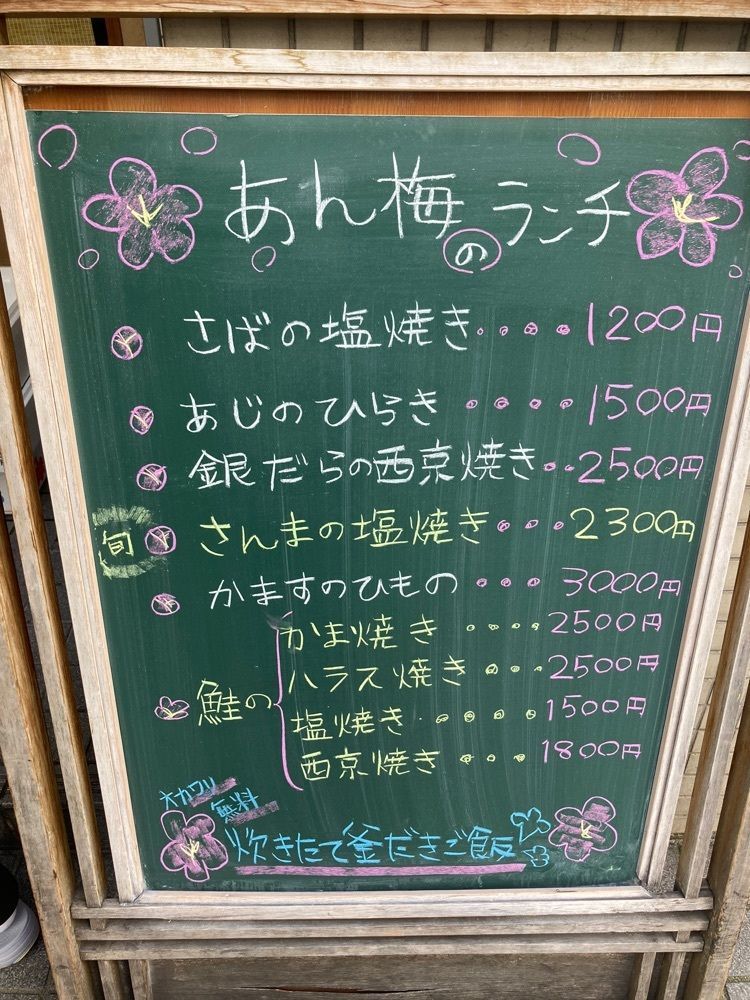 あん梅のランチ
さばの塩焼き・・・・1200円
あじのひらき・・・・1500円
銀だらの西京焼き・・2500円
旬 さんまの塩焼き・・・2300円
かますのひもの・・・3000円
鮭の
かま焼き・・・・2500円
ハラス焼き・・・2500円
塩焼き・・・・・1500円
西京焼き・・・1800円
オカワリ
無料
炊きたて釜だきご飯